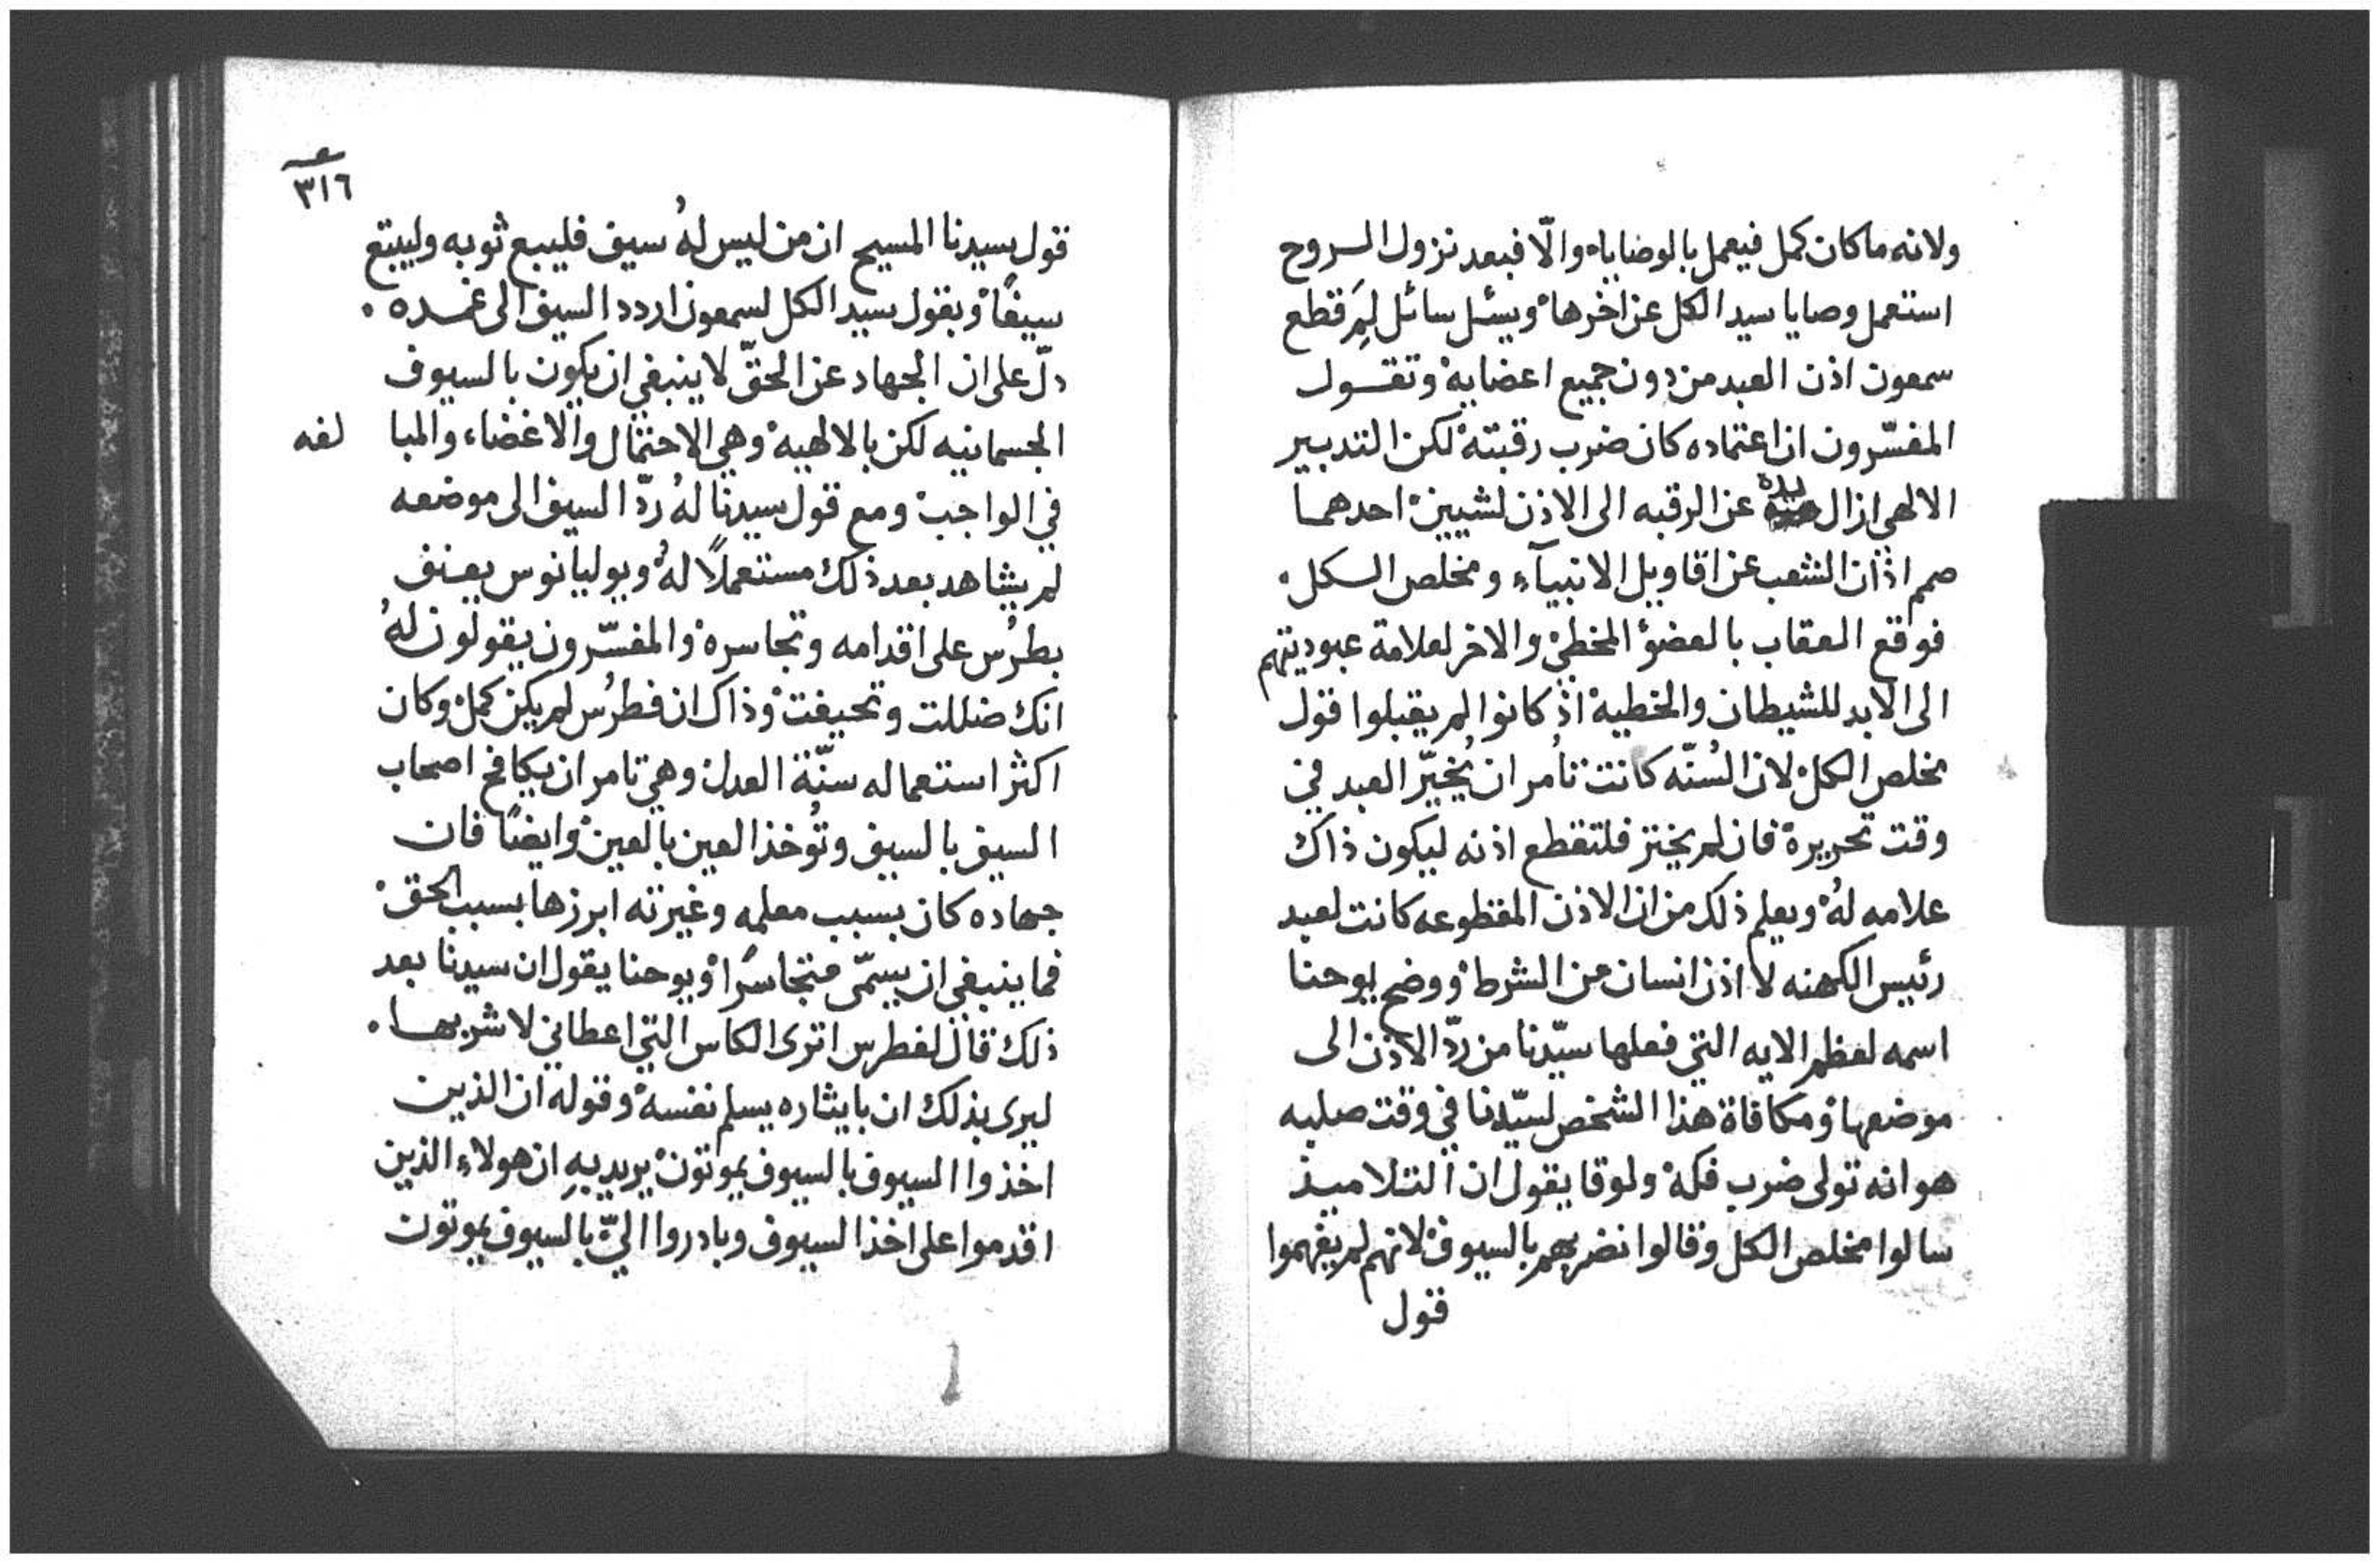 ولانه ماكان كمل فيعمل بالوضاياه والّا فبعد نزول الروح
استعمل وصايا سيد الكل عن اخرها ويسئل سائل لِمَ قطع
سمعون اذن العبد من دون جميع اعضايه وتقول
المفسّرون ان اعتماده كان ضرب رقبته لكن التدبير
الالهي ازال يده عن الرقبه الى الاذن لشيين احدهما
صمم اذان الشعب عن اقاويل الانبيآء ومخلص الكل
فوقع العقاب بالعضؤ المخطي والاخر لعلامة عبوديتهم
الى الابد للشيطان والخطيه اذ كانوا لم يقبلوا قول
مخلص الكل لان السُنّه كانت تأمر ان يُخيّر العبد في
وقت تحريره فان لم يختر فلتقطع اذنه ليكون ذاك
علامه لهُ ويعلم ذلك من ان الاذن المقطوعه كانت لعبد
رئيس الكهنه لا اذن انسان من الشرط ووضح يوحنا
اسمه لعظم الايه التي فعلها سيّدنا من ردّ الاذن الى
موضعها ومكافاة هذا الشخص لسيّدنا في وقت صلبه
هو انه تولى ضرب فكه ولوقا يقول ان التلاميذ
سالوا مخلص الكل وقالوا نضربهم بالسيوف لانهم لم يفهموا
قول
٣١٦
قول سيدنا المسيح ان من ليس لهُ سيف فليبع ثوبه وليبتع
سيفًا وبقول سيد الكل لسمعون اردد السيف الى غمده
دلّ على ان الجهاد عن الحقّ لا ينبغي ان يكون بالسيوف
الجسمانيه لكن بالالهيه وهي الاحتمال والاغضاء والمبا لغه
في الواجب ومع قول سيدنا لهُ ردّ السيف الى موضعه
لم يشاهد بعد ذلك مستعملًا لهُ ويوليانوس يعنف
بطرُس على اقدامه وتجاسره والمفسّرون يقولون لهُ
انك ضللت وتحيفت وذاك ان فطرُس لم يكن كمل وكان
اكثر استعماله سنّة العدل وهي تامر ان يكافح اصحاب
السيف بالسيف وتُوخذ العين بالعين وايضًا فان
جهاده كان بسبب معلمه وغيرته ابرزها بسبب الحق
فما ينبغي ان يسمّى متجاسرًا ويوحنا يقول ان سيدنا بعد
ذلك قال لفطرس اترى الكاس التي اعطاني لا شربها
ليرى بذلك ان بايثاره يسلم نفسه وقوله ان الذين
اخذوا السيوف بالسيوف يموتون يريد بهِ ان هولاء الذين
اقدموا على اخذ السيوف وبادروا اليّ بالسيوف يموتون